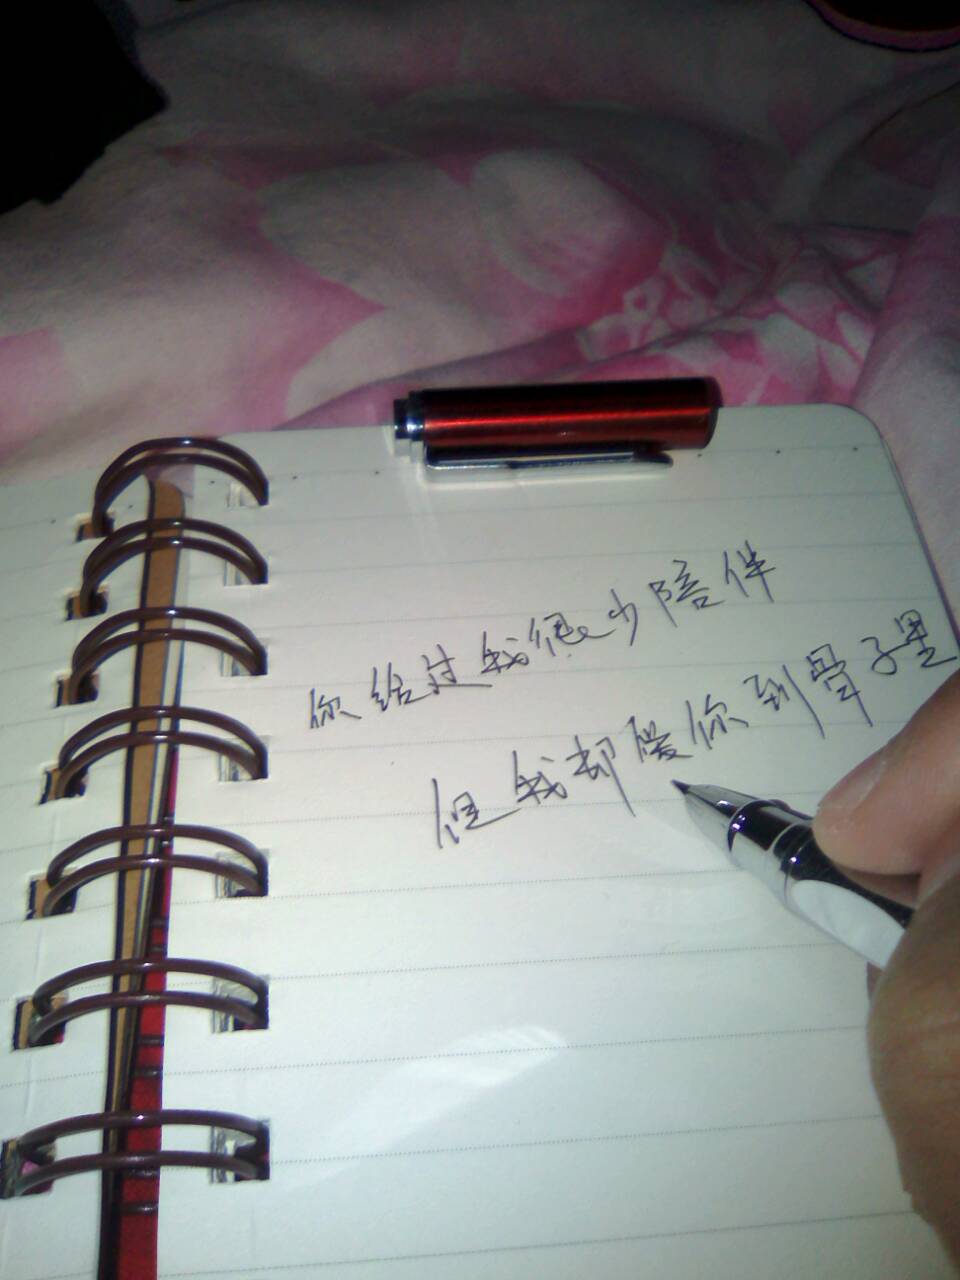 你给过我很少陪伴
但我却爱你到骨子里